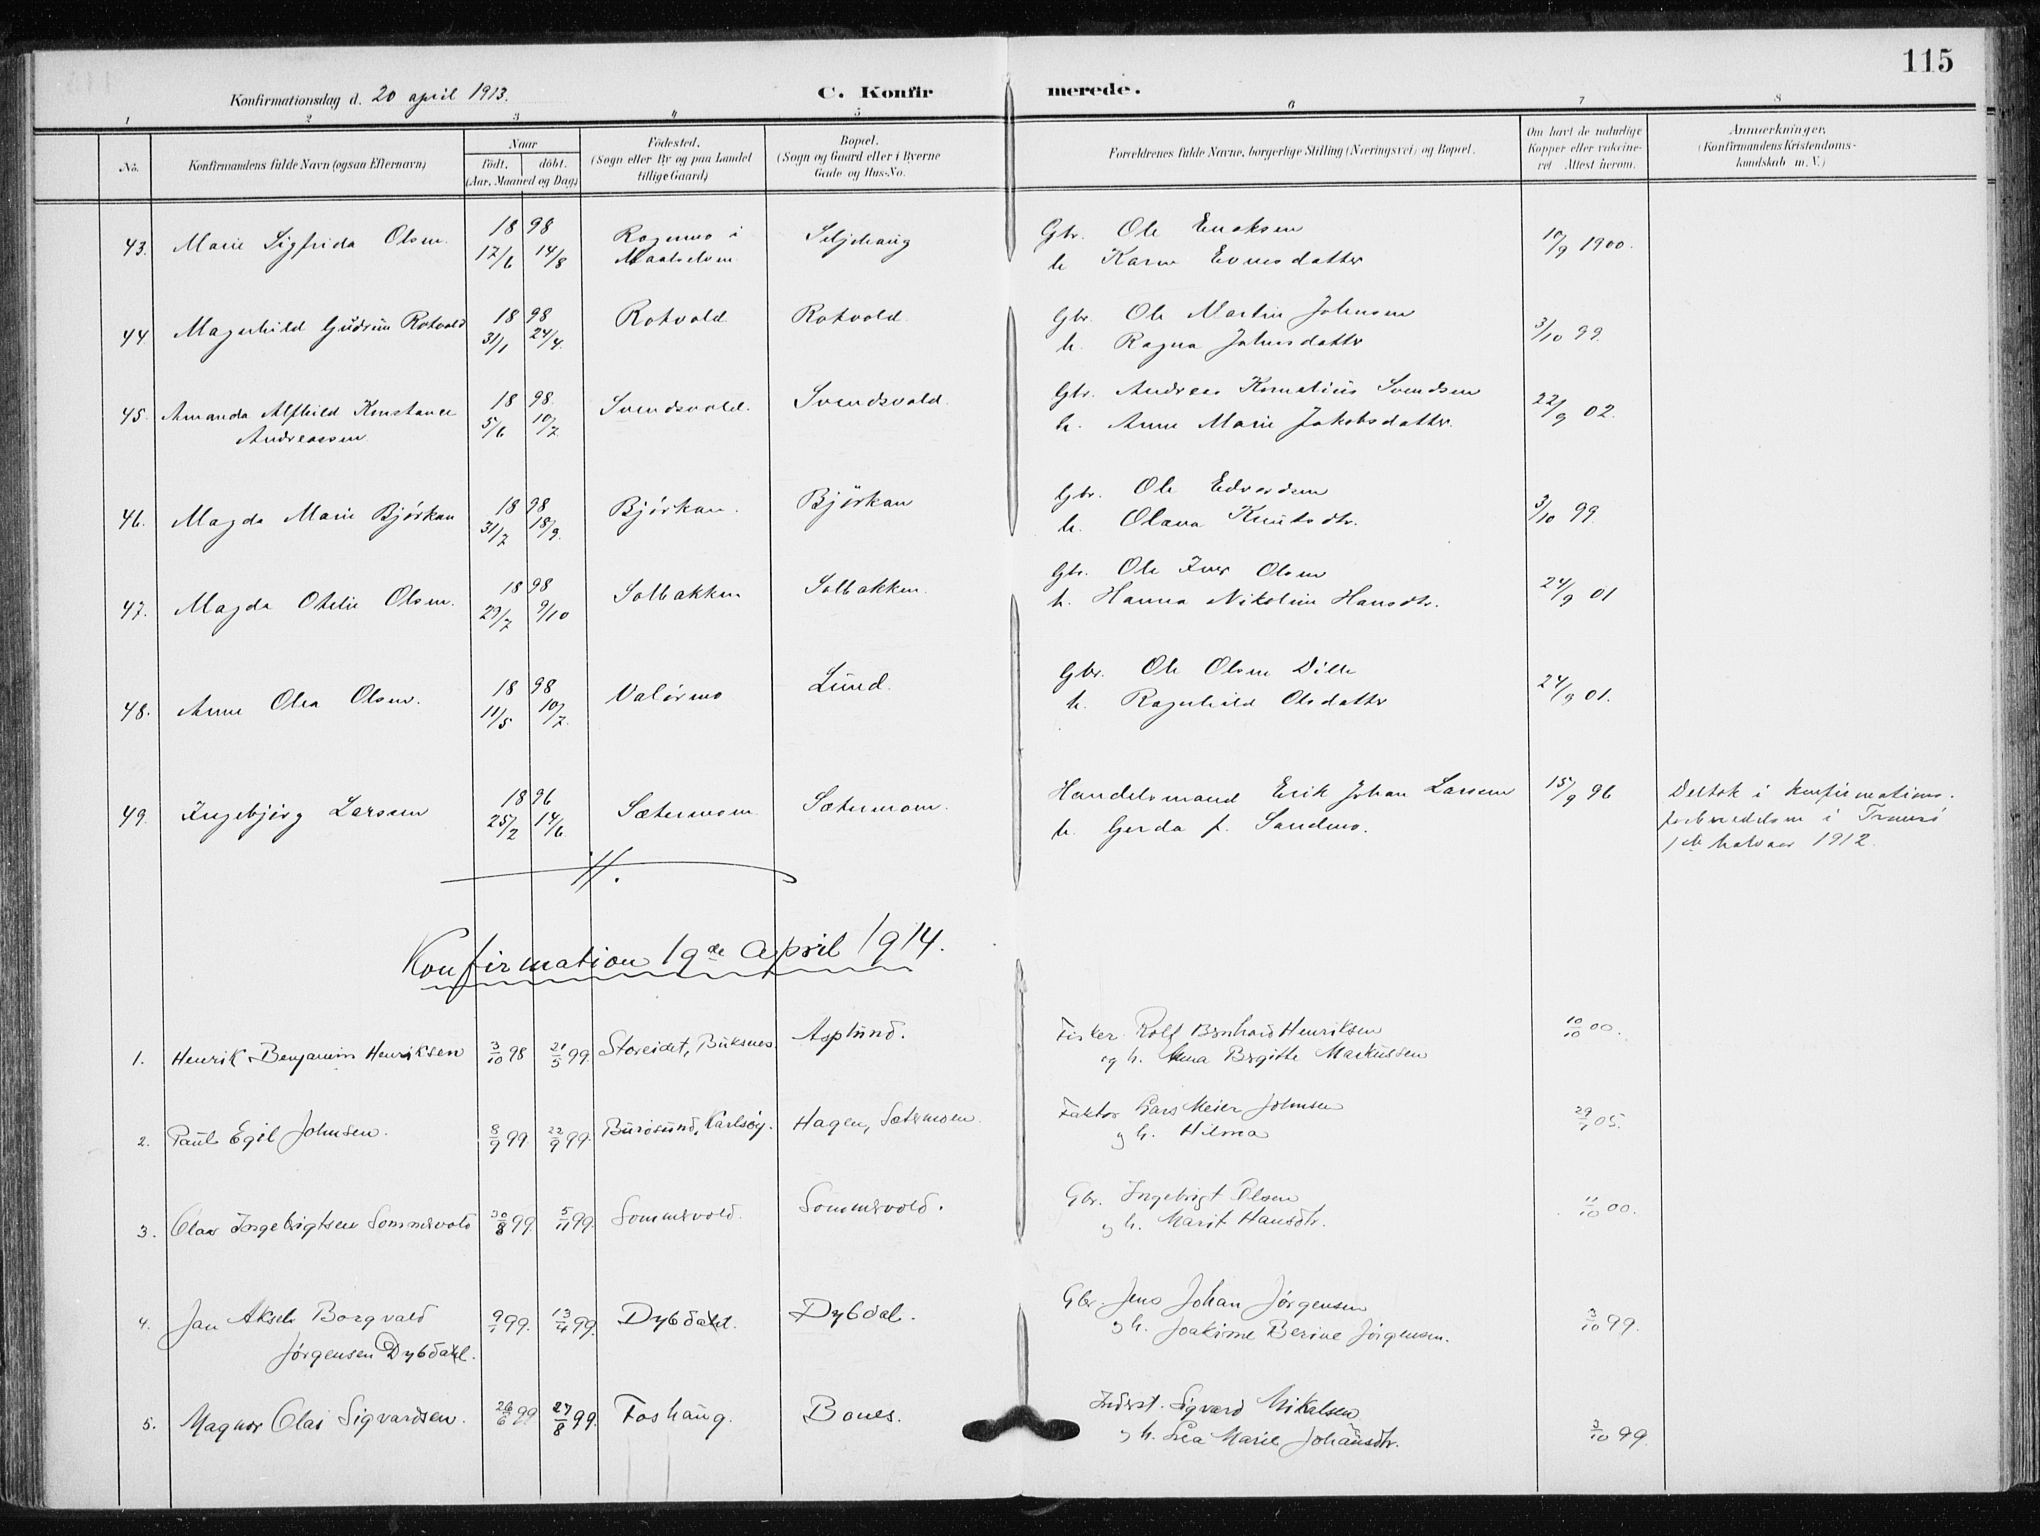 115
Konfirmationsdag d. 20 april 1913.
C. Konfirmerede.
1 2 3 4 5 6 7 8
No.
Konfirmandens fulde Navn (ogsaa Efternavn)
Naar
født. døbt.
(Aar, Maaned og Dag)
Fødested.
(Sogn eller By og paa Landet
tillige Gaard)
Bopæl.
(Sogn og Gaard eller i Byerne
Gade og Hus-No.
Forældrenes fulde Navne, borgerlige Stilling (Næringsvei) og Bopæl.
Om havt de naturlige
Kopper eller vaccine-
ret Attest herom.
Anmærkninger,
(Konfirmandens Kristendoms-
kundskab m. V.)
43. Marie Sigfrida Olsen. 1898 17/6 14/8 i Maalselven Seljehaug Gbr. Ole Eriksen 10/9 1900.
h. Karen
44 Magnhild Gudrun Rotvold 1898 31/1 24/4. Rotvold Rotvold Gbr. Ole Martin Johnsen 3/10 99.
h. Ragna Johnsdatter
45. Amanda Alfhild Konstance 1898. 5/6 10/7 Svendsvold. Svendsvold. Gbr. Andreas Kornelius Svendsen 22/9 02.
Andreassen h. Anne Marie Jakobsdatter.
46. Magda Marie Bjørkan 1898 31/7 18/9. Bjørkan. Bjørkan Gbr. Ole Edvardsen 3/10 99.
h. Olava Knutsdtr.
47. Magda Otelie Olsen. 1898 29/7 9/10 Solbakken Solbakken. Gbr. Ole Iver Olsen 24/9 01
h. Hanna Nikoline Hansdtr.
48. Anne Olea Olsen. 1898 11/5 10/7. Valørmo Lund. Gbr. Ole Olsen 24/9 01.
h. Ragnhild Olsdatter
49. Ingebjørg Larssen 1896 25/2 14/6 Sætermoen. Sætermoen. Handelsmand Erik Johan Larssen 15/9 96 Deltok i konfirmations-
h. Gerda f. Sandmo. forberedelsen i Tromsø
1ste halvaar 1912.
Konfirmation 19de april 1914.
1. Henrik Benjamin Henriksen 3/10 98 21/5 99 Storeidet, Buksnes Asplund. Fisker Rolf Bernhard Henriksen 10/10 00.
og h. Anna Birgitte Markussen
2. Paul Egil Johnsen. 8/9 99 22/9 99. Burøsund, Karlsøy. Hagen, Sætermoen. Faktor Lars Meier Johnsen 05.
og h. Hilma
3. Olav Ingebrigtsen Sommervold 30/8 99 5/11 99. Sommervold. Sommervold. Gbr. Ingebrigt Olsen 11/10 00.
og h. Marit Hansdtr.
4. Jan Aksel Borgvald 9/1 99. 13/4 99. Dybdahl. Dybdal. Gbr. Jens Johan Jørgensen 3/10 99.
Jørgensen Dybdahl. og h. Joakime Berine Jørgensen.
5. Magnor Olai Sigvardsen. 26/6 99 27/8 99. Foshaug. Bones. Inderst. Sigvard Mikalsen 3/10 99
og h. Lea Marie Johansdtr.